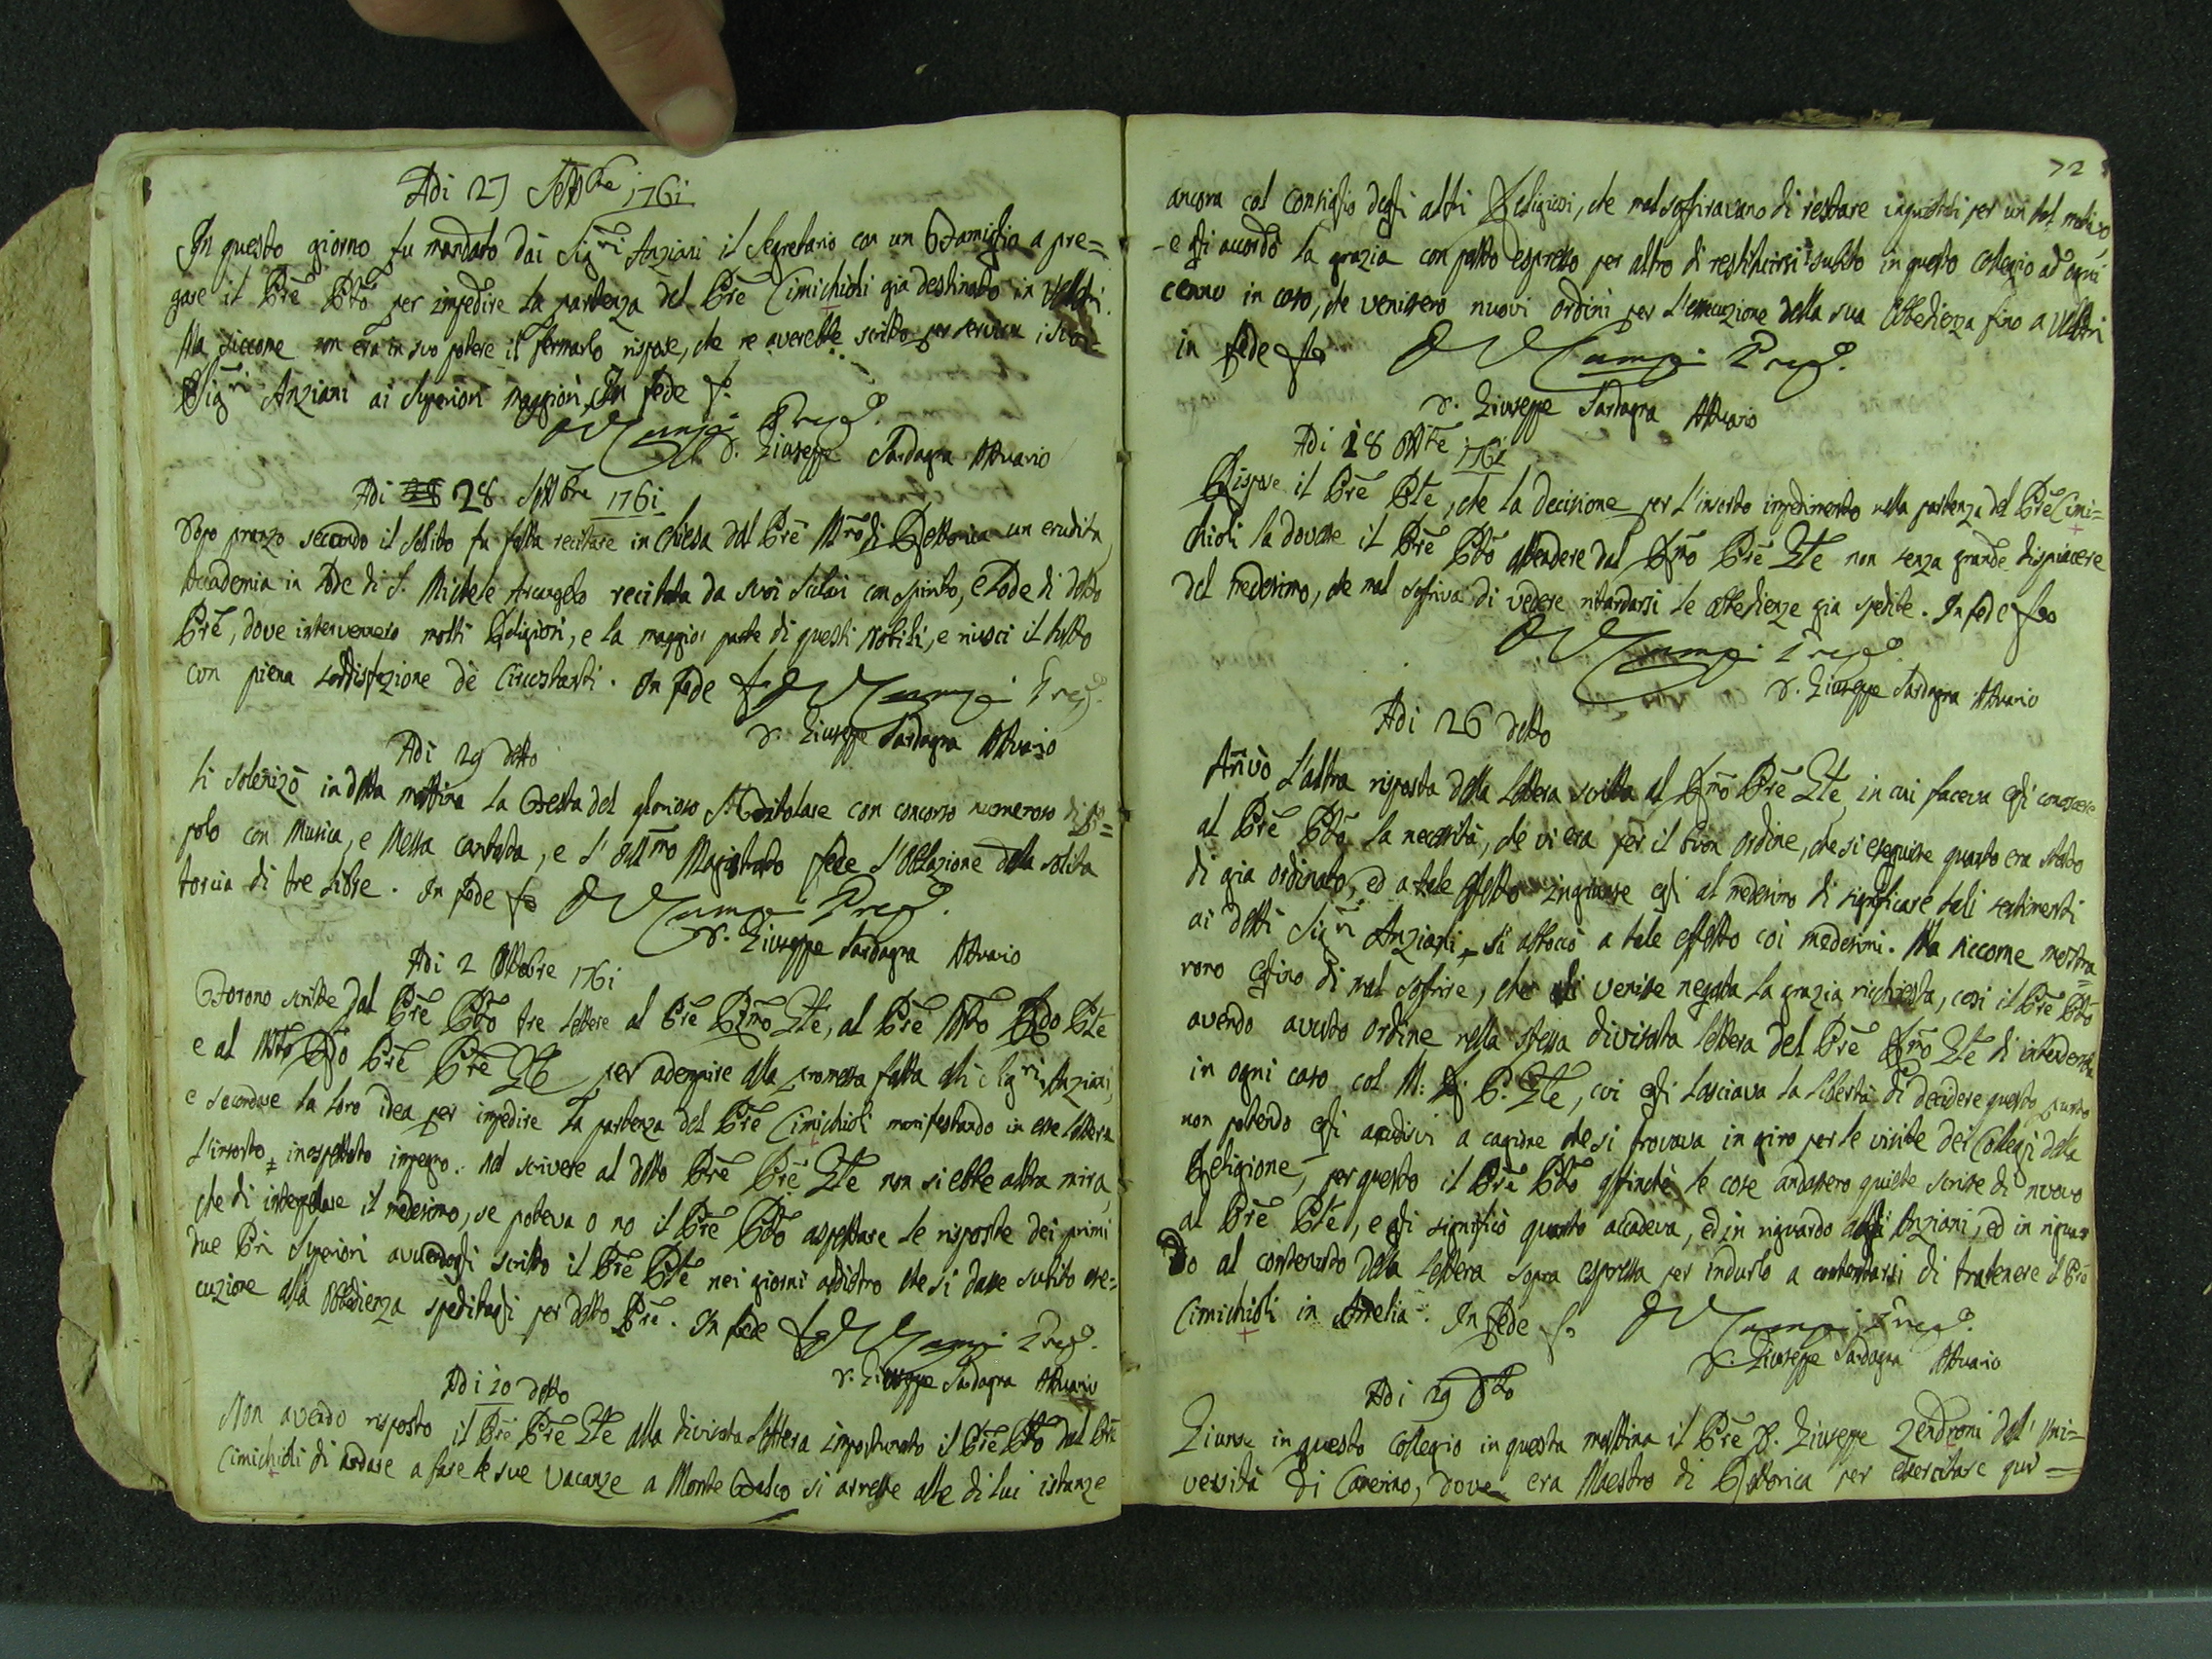 Adi 27 Settbre 1761
In questo giorno fu mandato dai Sigri Anziani il Segretario con un Famiglio a pre=
gare il Pre Ptto per impedire la partenza del Pre Cimichioli gia destinato in Velletri.
Ma siccome non era in suo potere il fermarlo rispose, che ne averebbe scritto per servire i
Sigri Anziani ai Superiori Maggiori. In fede
D. Giuseppe Sardagna Attuario
Adi 28 Settbre 1761
Dopo pranzo secondo il solito fu fatta recitare in Chiesa dal Pre Mro di Rettorica un erudita
Accademia in Lode di S. Michele Arcangelo recitata da suoi Scolari con spirito, e Lode di detto
Pre, dove intervennero molti Religiosi, e la maggior parte di questi Nobili, e riusci il tutto
con piena soddisfazione dè Circostanti. In fede
D. Giuseppe Sardagna Attuario
Adi 29 detto
Si solenizò in detta mattina la Festa del glorioso S. Titolare con concorso numeroso di po=
polo con Musica, e Messa cantata, e l' Illmo Magistrato fece l'Oblazione della solita
torcia di tre Libre. In fede
D. Giuseppe Sardagna Attuario
Adi 2 Ottobre 1761
Forono scritte dal Pre Ptto tre lettere al Pre Rmo Gle, al Pre Mto Rdo Ple
e al Mto Rdo Pre Pre Gle per adempire alla promessa fatta alli Sigri Anziani,
e secondare la loro idea per impedire la partenza del Pre Cimichioli manifestando in esse lettere
l'insorto, inaspettato impegno. Nel scrivere al detto Pre Pre Gle non si ebbe altra mira,
che di interpellare il medesimo, se poteva o no il Pre Ptto aspettare le risposte dei primi
due Pri Superiori avendogli scritto il Pre Ple nei giorni addietro che si dasse subito ese=
cuzione alla Obbedienza speditagli per detto Pre. In fede
D. Giuseppe Sardagna Attuario
Adi 10 detto
Non avendo risposto il Pre Pre Gle alla divisata Lettera importunato il Pre Ptto dal Pre
Cimichioli di andare a fare le sue vacanze a Monte Falco si arrese alle di lui istanze
72
ancora col Consiglio degli altri Religiosi, che mal soffrivano di restare inquietati per un tal motivo,
e gli accordò la grazia con patto espresso per altro di restituirsi subito in questo Collegio ad ogni
cenno in caso, che venissero nuovi ordini per l'esecuzione della sua Obbedienza fino a Velletri
in fede
D. Giuseppe Sardagna Attuario
Adi 18 Ottre 1761
Rispose il Pre Ple, che la decisione per l'insorto impedimento nella partenza del Pre Cimi=
chioli la dovesse il Pre Ptto attendere dal Rmo Pre Gle non senza grande dispiacere
del medesimo, che mal soffriva di vedere ritardarsi le obbedienze gia spedite. In fede
D. Giuseppe Sardagna Attuario
Adi 26 detto
Arrivò l'altra risposta della lettera scritta al Rmo Pre Gle, in cui faceva egli conoscere
al Pre Ptto la necessità, che vi era per il buon ordine, che si eseguisse quanto era stato
di gia ordinato, ed a tale effetto ingiunse egli al medesimo di significare tali sentimenti
ai detti Sigri Anziani, si abboccò a tale effetto coi medesimi. Ma siccome mostra=
rono eglino di mal soffrire, che gli venisse negata la grazia richiesta, così il Pre Ptto
avendo avuto ordine nella stessa divisata lettera del Pre Rmo Gle di intendersela
in ogni caso col M: R: P. Gle, cui egli lasciava la libertà di decidere questo punto
non potendo egli accudirvi a cagione che si trovava in giro per le visite dei Collegj della
Religione, per questo il Pre Ptto affinchè le cose andassero quiete scrisse di nuovo
al Pre Ple, e gli significò quanto accadeva, ed in riguardo agli Anziani, ed in riguar
do al contenuto della lettera sopra espressa per indurlo a contentarsi di trattenere il Pre
Cimichioli in Amelia. In fede
D. Giuseppe Sardagna Attuario
Adi 29 dto
Giunse in questo Collegio in questa mattina il Pre D. Giuseppe Zendroni dal' Uni=
versità di Camerino, dove era Maestro di Rettorica per esercitare qui=